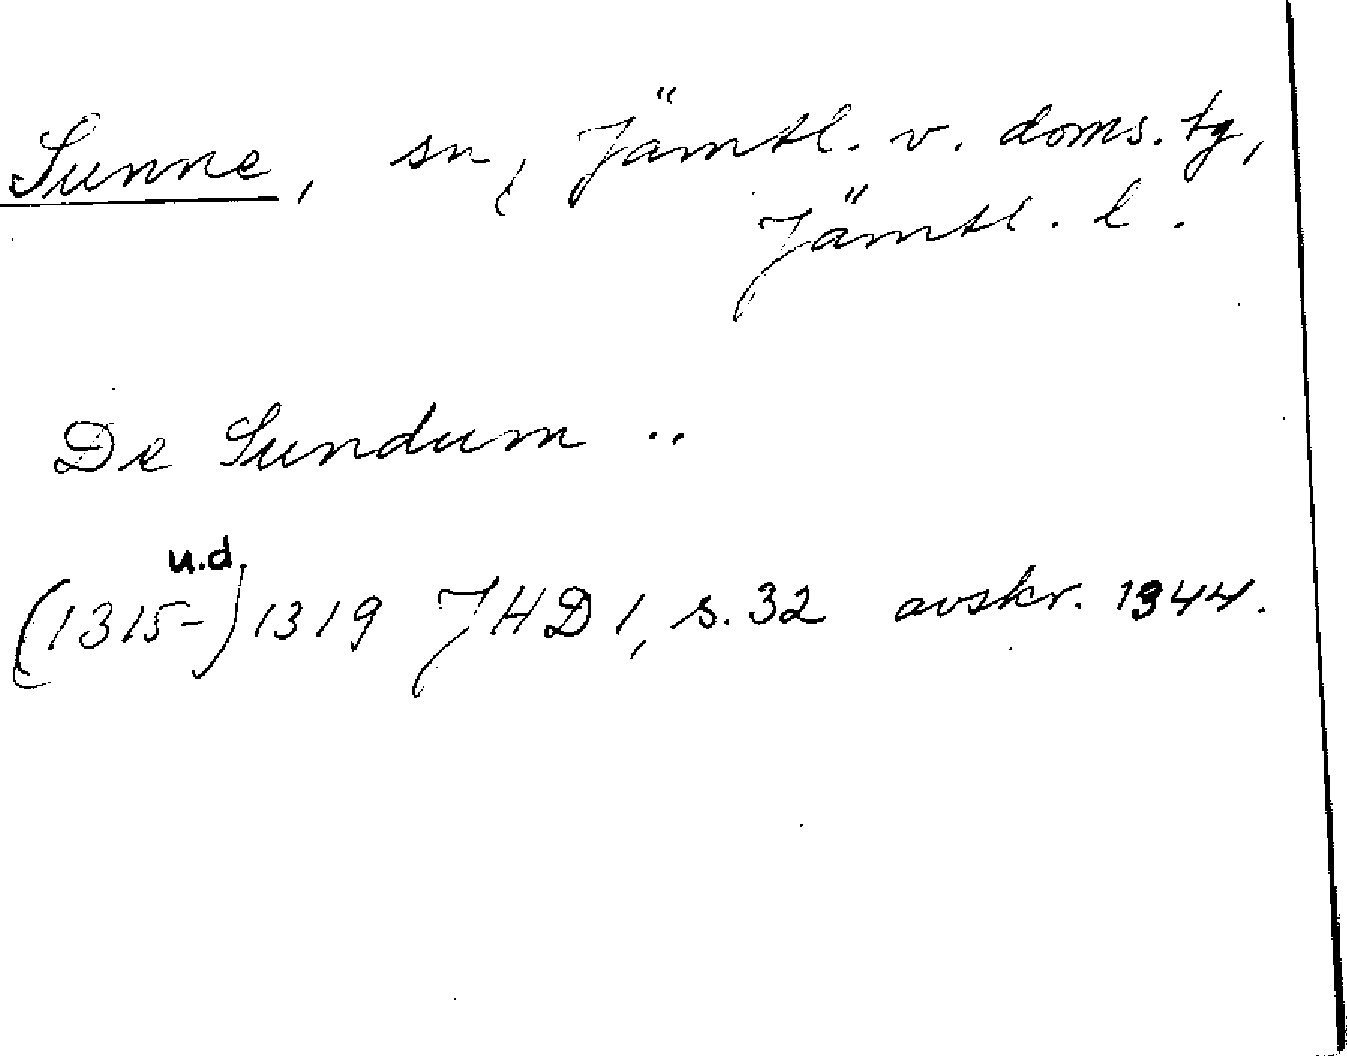 Sunne, sn, Jämtl. v. doms. tg,
Jämtl. l.
De Sundum ..
u.d.
(1315-) 1319 JHD 1, s. 32 avskr. 1344.